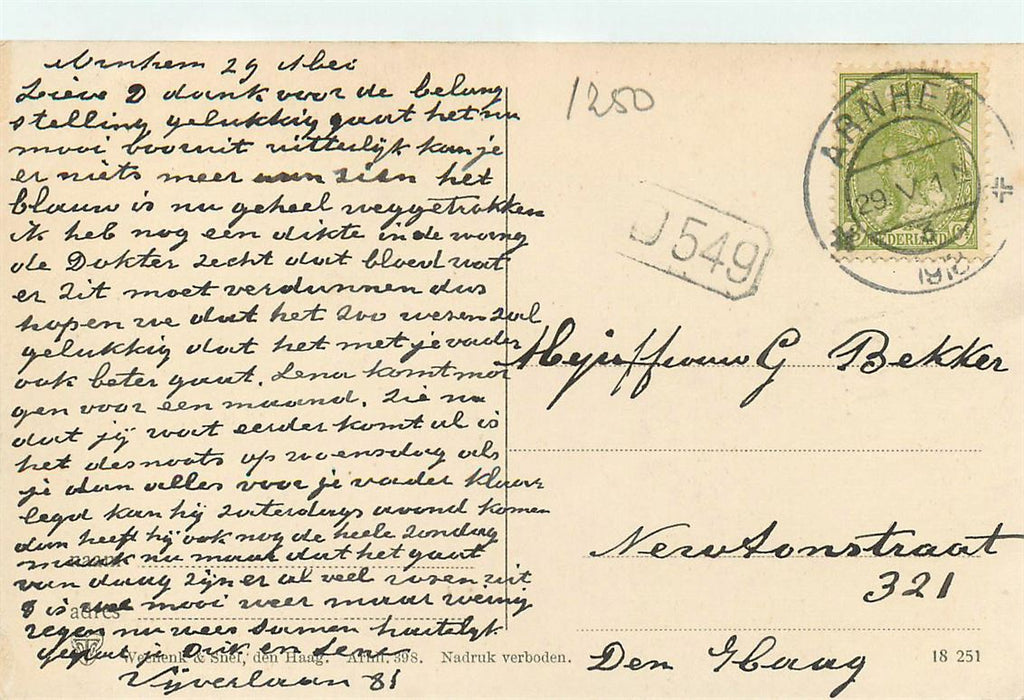 Arnhem 29 Mei
Lieve D dank voor de belang
stelling gelukkig gaat het nu
mooi vooruit uitterlijk kan je
er niets meer aan zien het
blauw is nu geheel weggetrokken
ik heb nog een dikte in de wang
de Dokter zecht dat bloed wat
er zit moet verdunnen dus
hopen we dat het zoo wezen zal
gelukkig dat het met je vader
ook beter gaat. Lena komt mor
gen voor een maand. Zie nu
dat jij wat eerder komt al is
het desnoots op woensdag als
je dan alles voor je vader klaar
legd kan hij zaterdags avond komen
dan heeft hij ook nog de heele zondag
maak nu maar dat het gaat
van daag zijn er al veel rozen uit
is mooi weer maar weinig
regen nu wees samen hartelijk
Dirk en Lena
Vijverlaan 81
naam
adres
Weenenk & Snel, den Haag. Arnh. 398. Nadruk verboden.
1250
D 549
ARNHEM
29. V. 1
1918
NEDERLAND
Mejuffrouw G Bekker
Newtonstraat
321
Den Haag
18 251